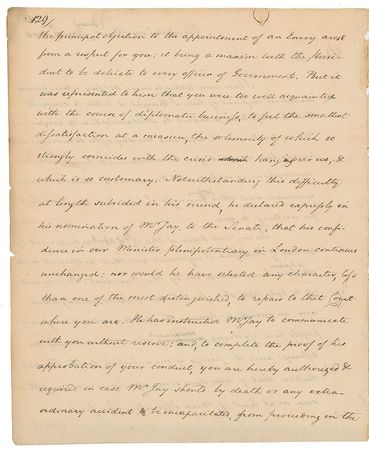 129/
the principal objection to the appointment of an Envoy arose
from a respect for you; it being a maxim with the Presi-
dent to be delicate to every officer of Government. But it
was represented to him that you were too well acquainted
with the course of diplomatic business, to feel the smallest
dissatisfaction at a measure, the solemnity of which so
strongly coincides with the crisis hanging over us, &
which is so customary. Notwithstanding this difficulty
at length subsided in his mind, he declared expressly in
his nomination of Mr Jay to the Senate, that his confi-
dence in our Minister plenipotentiary in London continues
unchanged: nor would he have selected any character, less
than one of the most distinguished, to repair to that Court
where you are. He has instructed Mr Jay to communicate
with you without reserve; and, to complete the proof of his
approbation of your conduct, you are hereby authorized &
required in case Mr Jay should by death or any extra-
ordinary accident be incapacitated, from proceeding in the